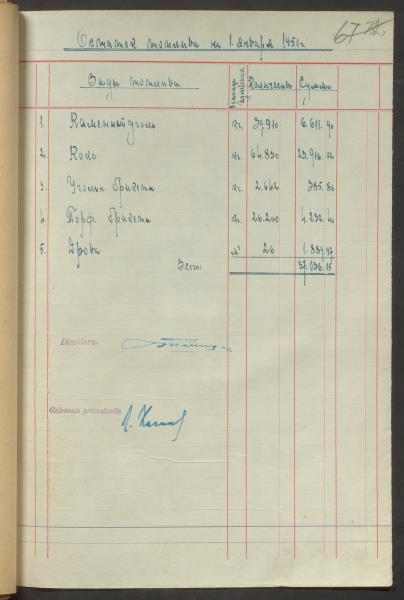 67
Остаток топлива на 1 января 1951 г.
Виды топлива Единица измерения Количество Сумма
1. Каменный уголь кг. 39.910 6.611.90
2. Кокс кг. 64.830 23.916.02
3. Угольн. брикеты кг. 2.642 385.86
4. Торф. брикеты кг. 26.200 4.232.40
5. Дрова м³ 26 1.889.97
Всего: 37.036.15
Direktors
Galvenais grāmatvedis